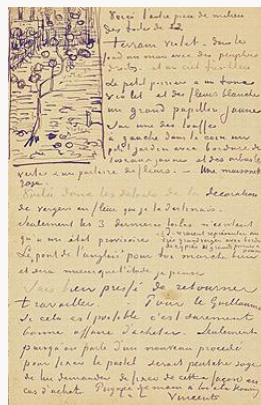 Voici l'autre pièce de milieu
des toiles de 12
terrain violet - dans le
fond un mur avec des peupliers
droits et un ciel
Le petit poirier a un tronc
violet et des fleurs blanches
un grand papillon jaune
sur une des touffes
à gauche dans le coin un
petit jardin avec bordure de
roseaux jaunes et des arbustes
verts et un parterre de fleurs. - Une maisonnette
rose.
Voilà donc les détails de la décoration
de vergers en fleur que je te destinais.
Seulement les 3 dernières toiles n'existent
qu'à un état provisoire et
représenter un
très grand verger avec bordure
de cyprès
Le pont de l'anglais pour marche bien
et sera mieux que l'étude je pense
Suis bien pressé de retourner
travailler. Pour le Guillaumin
si cela est possible c'est sûrement
bonne affaire d'acheter. Seulement
puisqu'on parle d'un nouveau procédé
pour fixer le pastel serait peut-être sage
de lui demander de fixer de cette façon en
cas d'achat. Poignée de main à toi et à Koning
Vincent